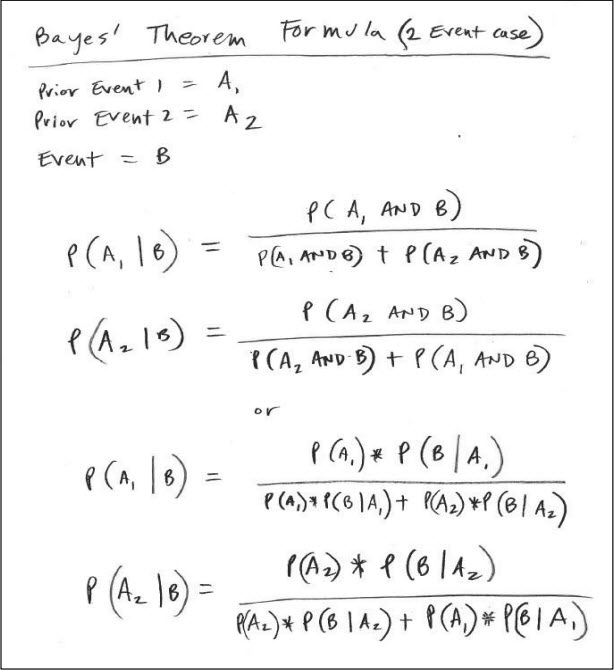 Bayes' Theorem Formula (2 Event case)
Prior Event 1 = A₁
Prior Event 2 = A₂
Event = B
P(A₁ | B) = P(A₁ AND B) / P(A₁ AND B) + P(A₂ AND B)
P(A₂ | B) = P(A₂ AND B) / P(A₂ AND B) + P(A₁ AND B)
or
P(A₁ | B) = P(A₁) * P(B | A₁) / P(A₁) * P(B | A₁) + P(A₂) * P(B | A₂)
P(A₂ | B) = P(A₂) * P(B | A₂) / P(A₂) * P(B | A₂) + P(A₁) * P(B | A₁)